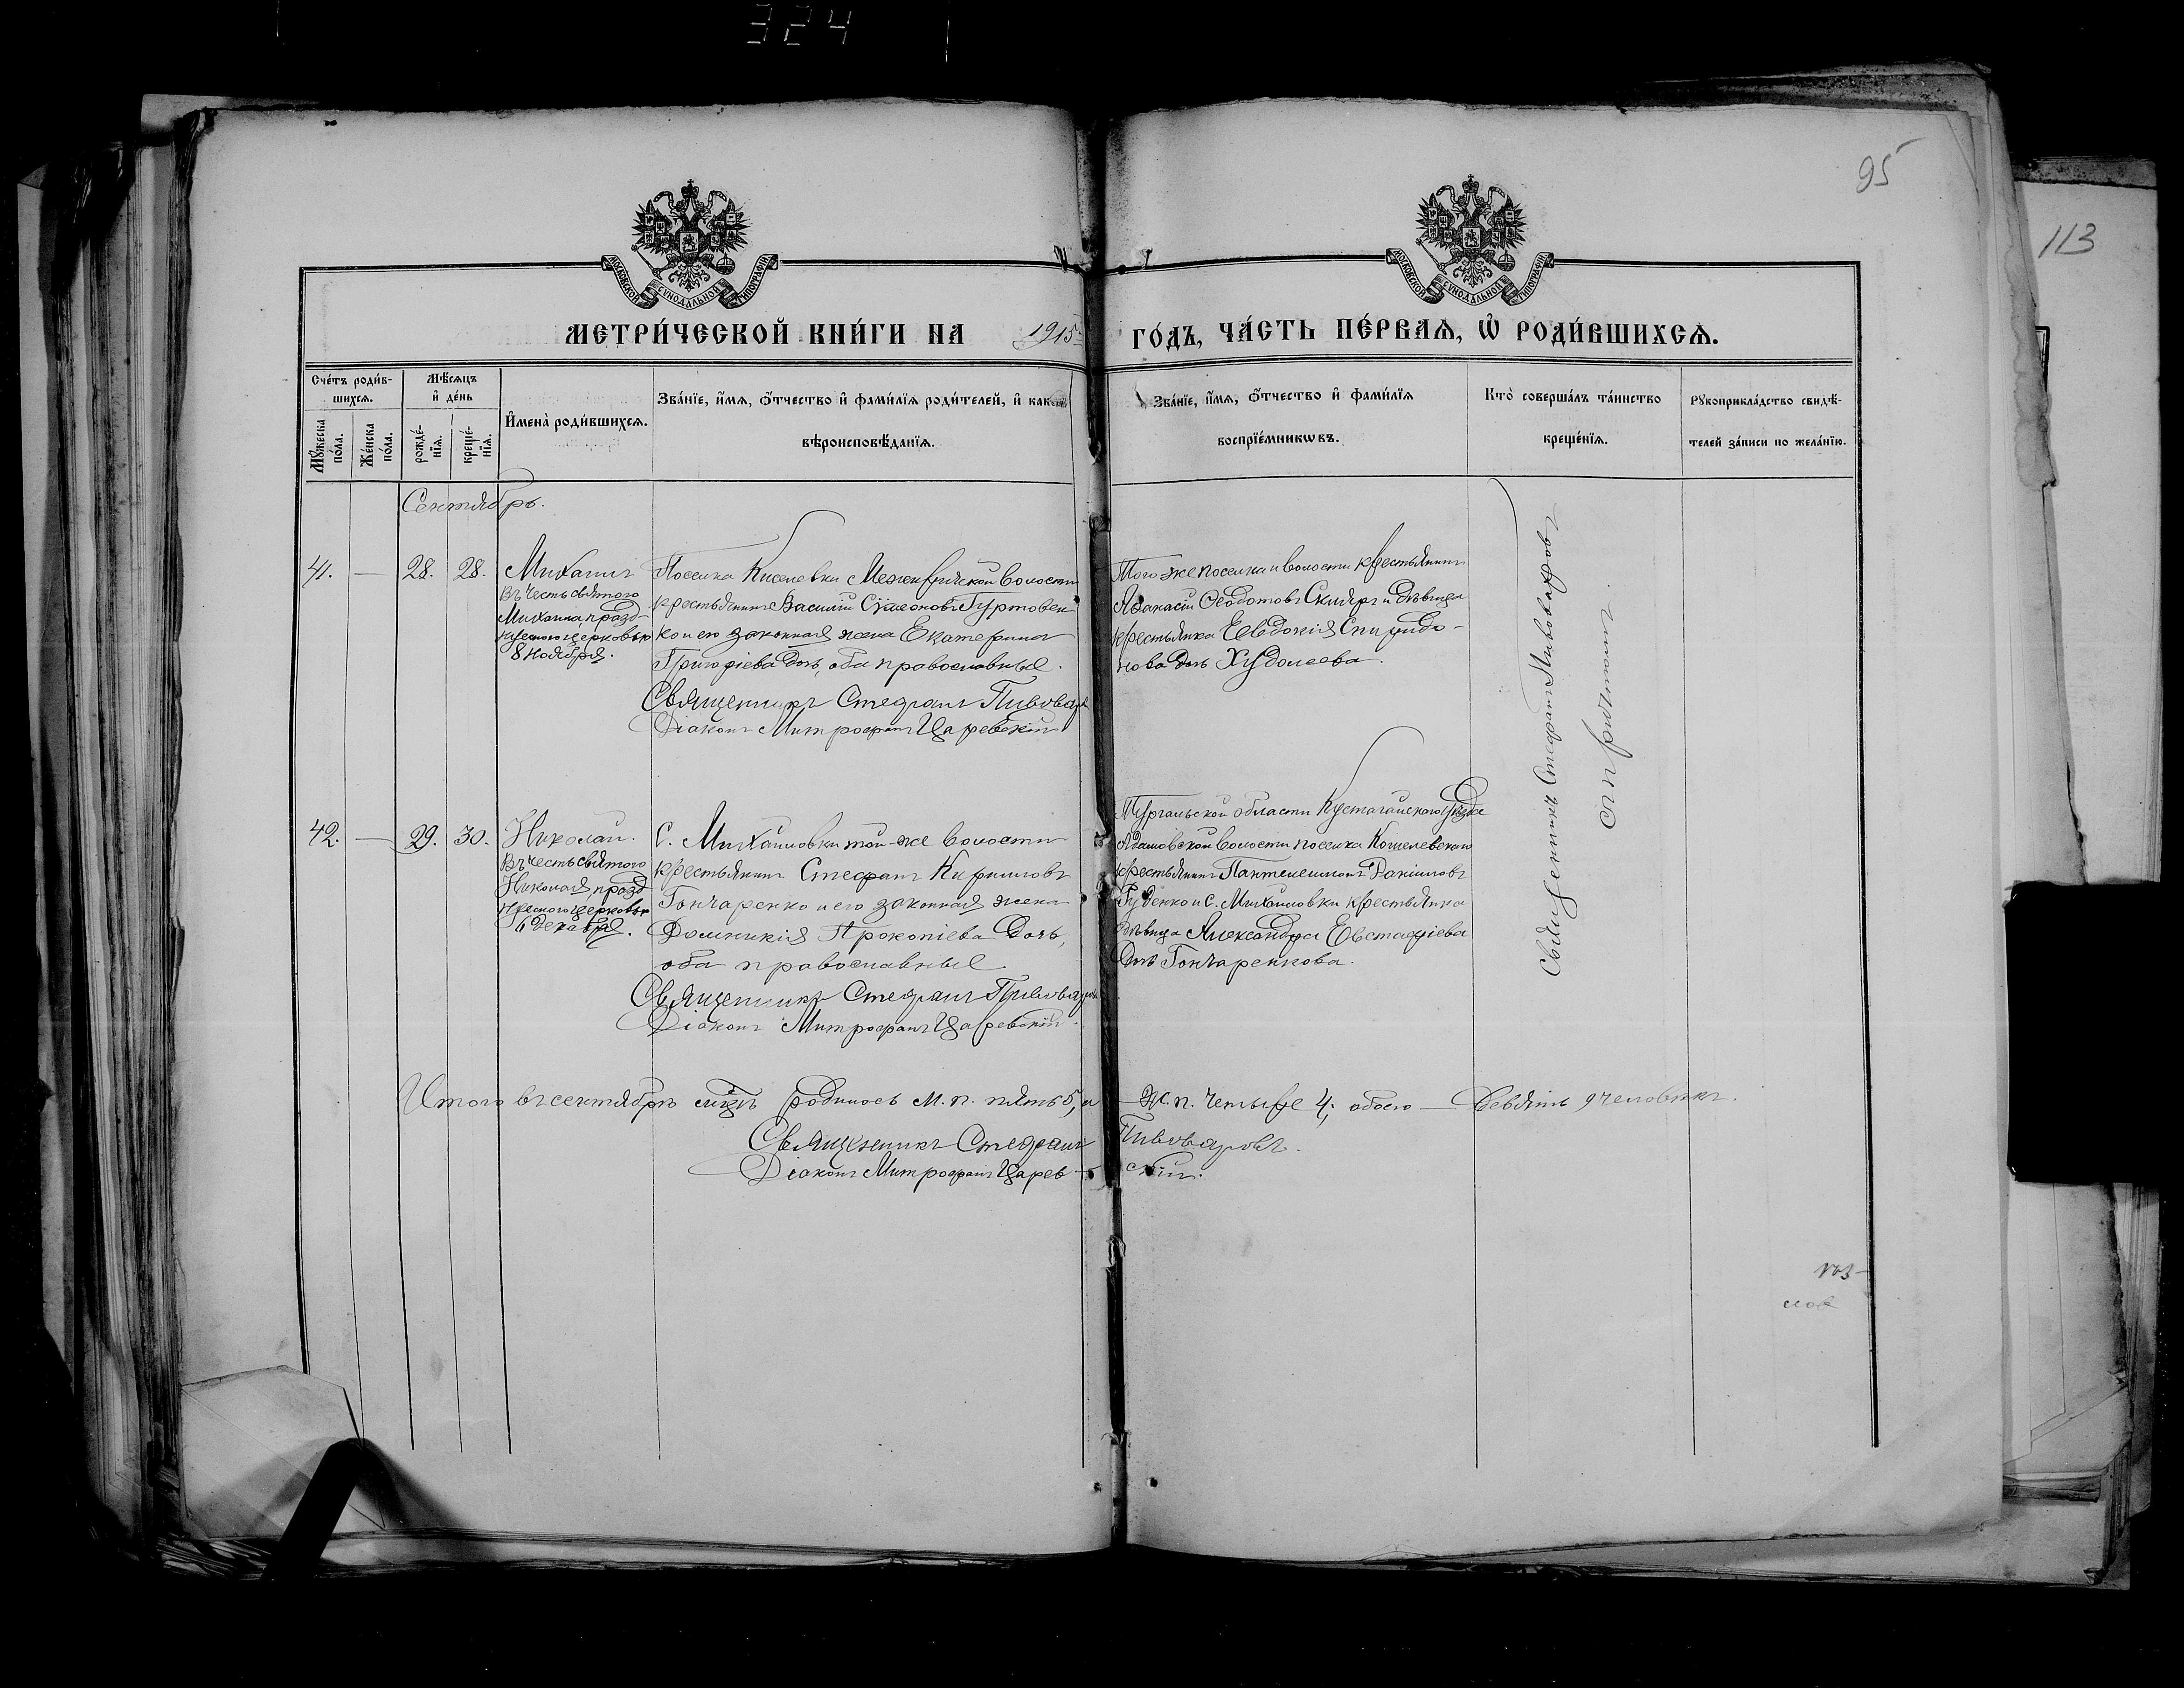 324
95
113
МОСКОВСКОЙ СѴНОДАЛЬНОЙ ТИПОГРАФІИ
МОСКОВСКОЙ СѴНОДАЛЬНОЙ ТИПОГРАФІИ
МЕТРИ́ЧЕСКОЙ КНИ́ГИ НА 1915 ГО́ДЪ, ЧА́СТЬ ПЕ́РВАѦ, Ѡ҆ РОДИ́ВШИХСѦ.
Сче́тъ роди́в-
шихсѧ.
Мꙋ́жеска
по́ла.
Же́нска
по́ла.
Мѣ́сѧцъ
и҆ де́нь
рожде́-
нїѧ.
креще́-
нїѧ.
И҆мена̀ роди́вшихсѧ.
Зва́нїе, и҆́мѧ, ѻ҆́тчество и҆ фами́лїѧ роди́телей, и҆ како́гѡ
вѣроисповѣ́данїѧ.
Зва́нїе, и҆́мѧ, ѻ҆́тчество и҆ фами́лїѧ
воспрїе́мникѡвъ.
Кто̀ соверша́лъ та́инство
креще́нїѧ.
Рꙋкоприкла́дство свидѣ́-
телей за́писи по жела́нїю.
Сентябрь.
41.
—
28.
28.
Михаилъ
Въ честь святого
Михаила, празд-
нуемого церковью
8 ноября.
Поселка Киселевки Межигрической волости
крестьянинъ Василій Сѵмеоновъ Гуртовен
ко и его законная жена Екатерина
Григоріева дочь, оба православные.
Священникъ Стефанъ Пивоваровъ
Діаконъ Митрофанъ Царевскій
Того же поселка и волости крестьянинъ
Аѳанасій Ѳеодотовъ Скляръ и дѣвица
крестьянка Евдокія Спиридо-
нова дочь Худолеева.
Священникъ Стефанъ Пивоваровъ
42.
—
29.
30.
Николай.
Въ честь святого
Николая, празд
нуемого церковью
6 декабря.
С. Михайловки той-же волости
крестьянинъ Стефанъ Кирилловъ
Гончаренко и его законная жена
Домникія Прокопіева дочь,
оба православные
Священникъ Стефанъ Пивоваровъ
Діаконъ Митрофанъ Царевскій.
Тургайской области Кустанайского уѣзда
Адамовской волости поселка Кошелевского
крестьянинъ Пантелеимонъ Данииловъ
Гуденко и с. Михайловки крестьянка
дѣвица Александра Евстафіева
дочь Гончаренкова.
Итого въ сентябрѣ мѣсяцѣ родилось м. п. пять 5, и ж. п. четыре 4; обоего — девять 9 человѣкъ.
Священникъ Стефанъ Пивоваровъ.
Діаконъ Митрофанъ Царев-скій.